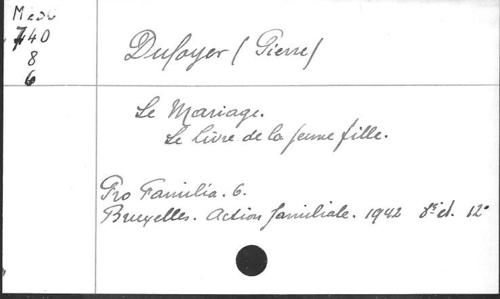 Medd
740
8
6
Dufoyer (Pierre)
Le Mariage.
Le Livre de la jeune fille.
Pro Familia. 6.
Bruxelles. Action familiale. 1942 8e éd. 12°